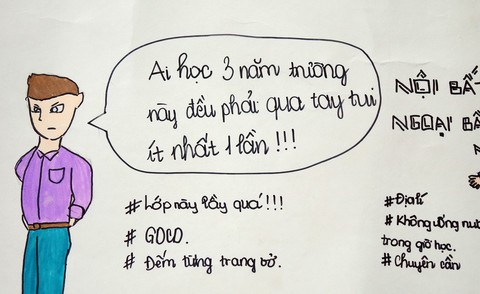 Ai học 3 năm trường
này đều phải qua tay tui
ít nhất 1 lần !!!
# Lớp này lầy quá!!!
# GDCD.
# Đếm từng trang vở.
NỘI BẤT
NGOẠI BẤ
# Địa lí
# Không uống nướ
trong giờ học.
# Chuyên cần